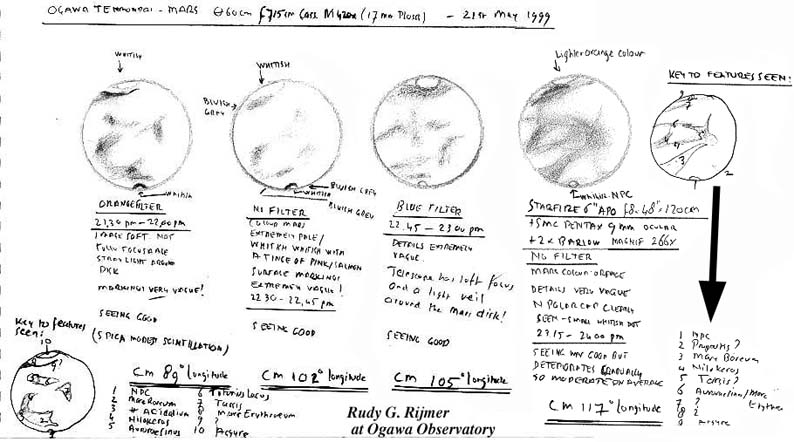 OGAWA TENMONDAI - MARS ⌀60cm f715cm Cass M420x (17mm Plossl) - 21st May 1999
WHITISH
WHITISH
BLUISH GREY
Lighter orange colour
KEY TO FEATURES SEEN:
WHITISH
BLUISH GREY
WHITISH
BLUISH GREY
WHITISH NPC
ORANGE FILTER
21,30 pm - 22,00 pm
IMAGE SOFT. NOT
FULLY FOCUSABLE
STRAY LIGHT AROUND
DISK
MARKINGS VERY VAGUE!
SEEING GOOD
(SPICA MODEST SCINTILLATION)
CM 89° longitude
NO FILTER
COLOUR MARS
EXTREMELY PALE/
WHITISH WHITISH WITH
A TINGE OF PINK/SALMON
SURFACE MARKINGS
EXTREMELY VAGUE!
22.30 - 22,45 pm
SEEING GOOD
CM 102° longitude
BLUE FILTER
22.45 - 23.00 pm
DETAILS EXTREMELY
VAGUE.
Telescope has soft focus
and a light veil
around the mars disk!
SEEING GOOD
CM 105° longitude
STARFIRE 6" APO f8 - 48" = 120cm
+ SMC PENTAX 9 mm OCULAR
+ 2x BARLOW MAGNIF 266x
NO FILTER
MARS COLOUR - ORANGE
DETAILS VERY VAGUE
N POLAR CAP CLEARLY
SEEN - SMALL WHITISH DOT
23.15 - 24.00 pm
SEEING VERY GOOD BUT
DETERIORATES GRADUALLY
SO MODERATE ON AVERAGE
CM 117° longitude
1 NPC
2 Propontis?
3 Mare Boreum
4 Nilokeras
5 Tharsis?
6 Aurorae Sin/Mare Erythr
7 ?
8 ?
9 Arsure
Key to features seen:
1 NPC
2 Mare Boreum
3 M Acidalium
4 Nilokeras
5 Aurorae Sinus
6 Tithonius Lacus
7 Tharsis
8 Mare Erythraeum
9 ?
10 Arsure
Rudy G. Rijmer
at Ogawa Observatory